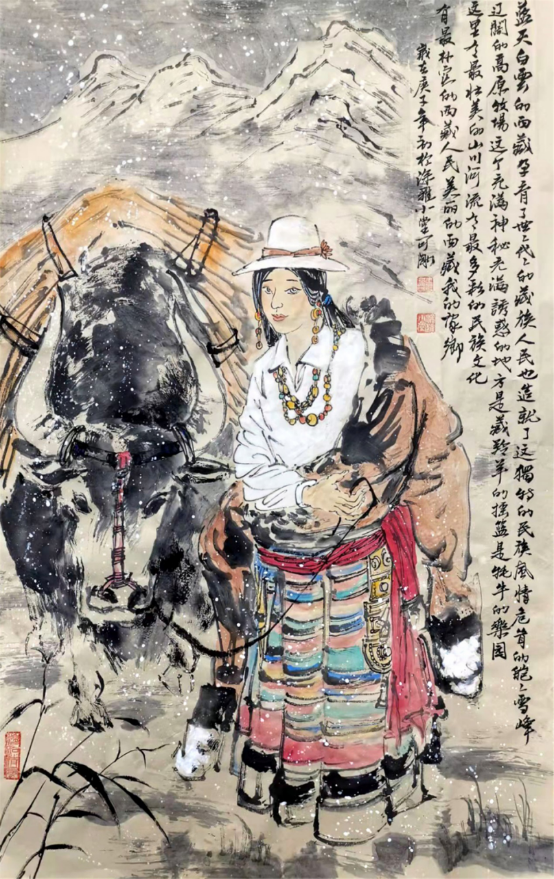 蓝天白雲的西藏孕育了世世代代的藏族人民也造就了这独特的民族風情危耸的皑皑雪峰
辽阔的高原牧場这个充满神秘充满誘惑的地方是藏羚羊的摇篮是牦牛的樂园
这里有最壮美的山川河流有最多彩的民族文化
有最朴实的西藏人民美丽的西藏我的家鄉
歲在庚子年初於深雅小堂可刚